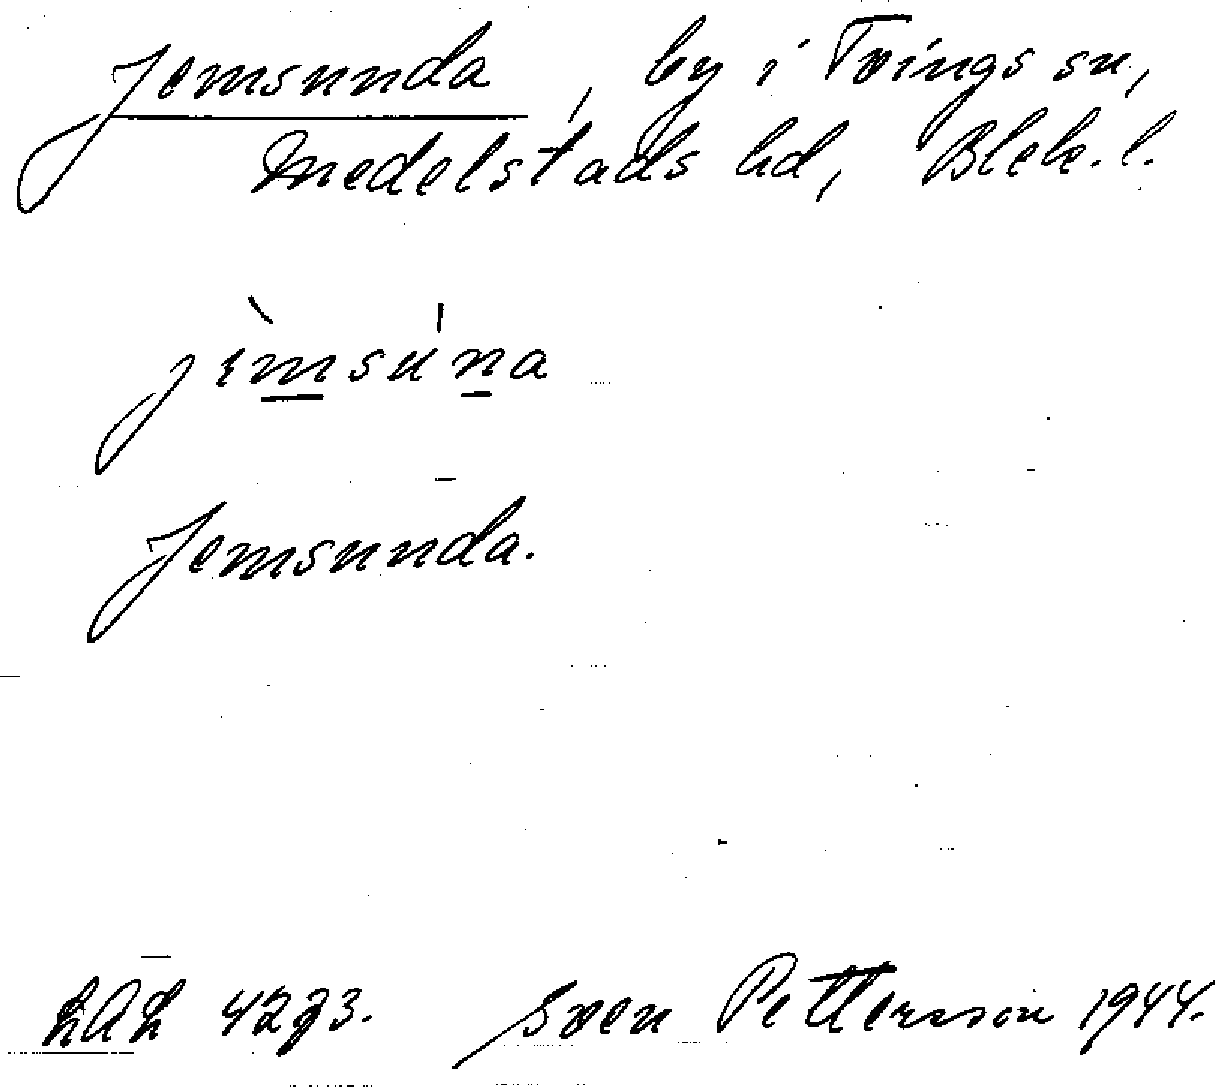 Jemsunda, by i Tvings sn,
Medelstads hd, Blek. l.
Jemsunda.
LAL Sven Pettersson 1944.